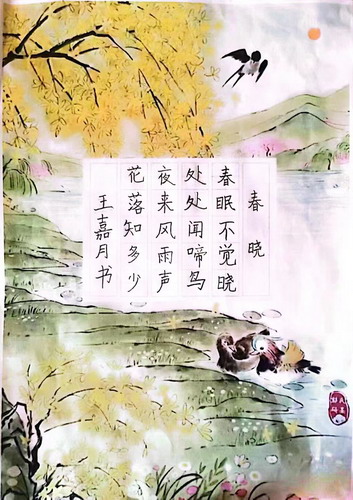 春晓
春眠不觉晓
处处闻啼鸟
夜来风雨声
花落知多少
王嘉月书